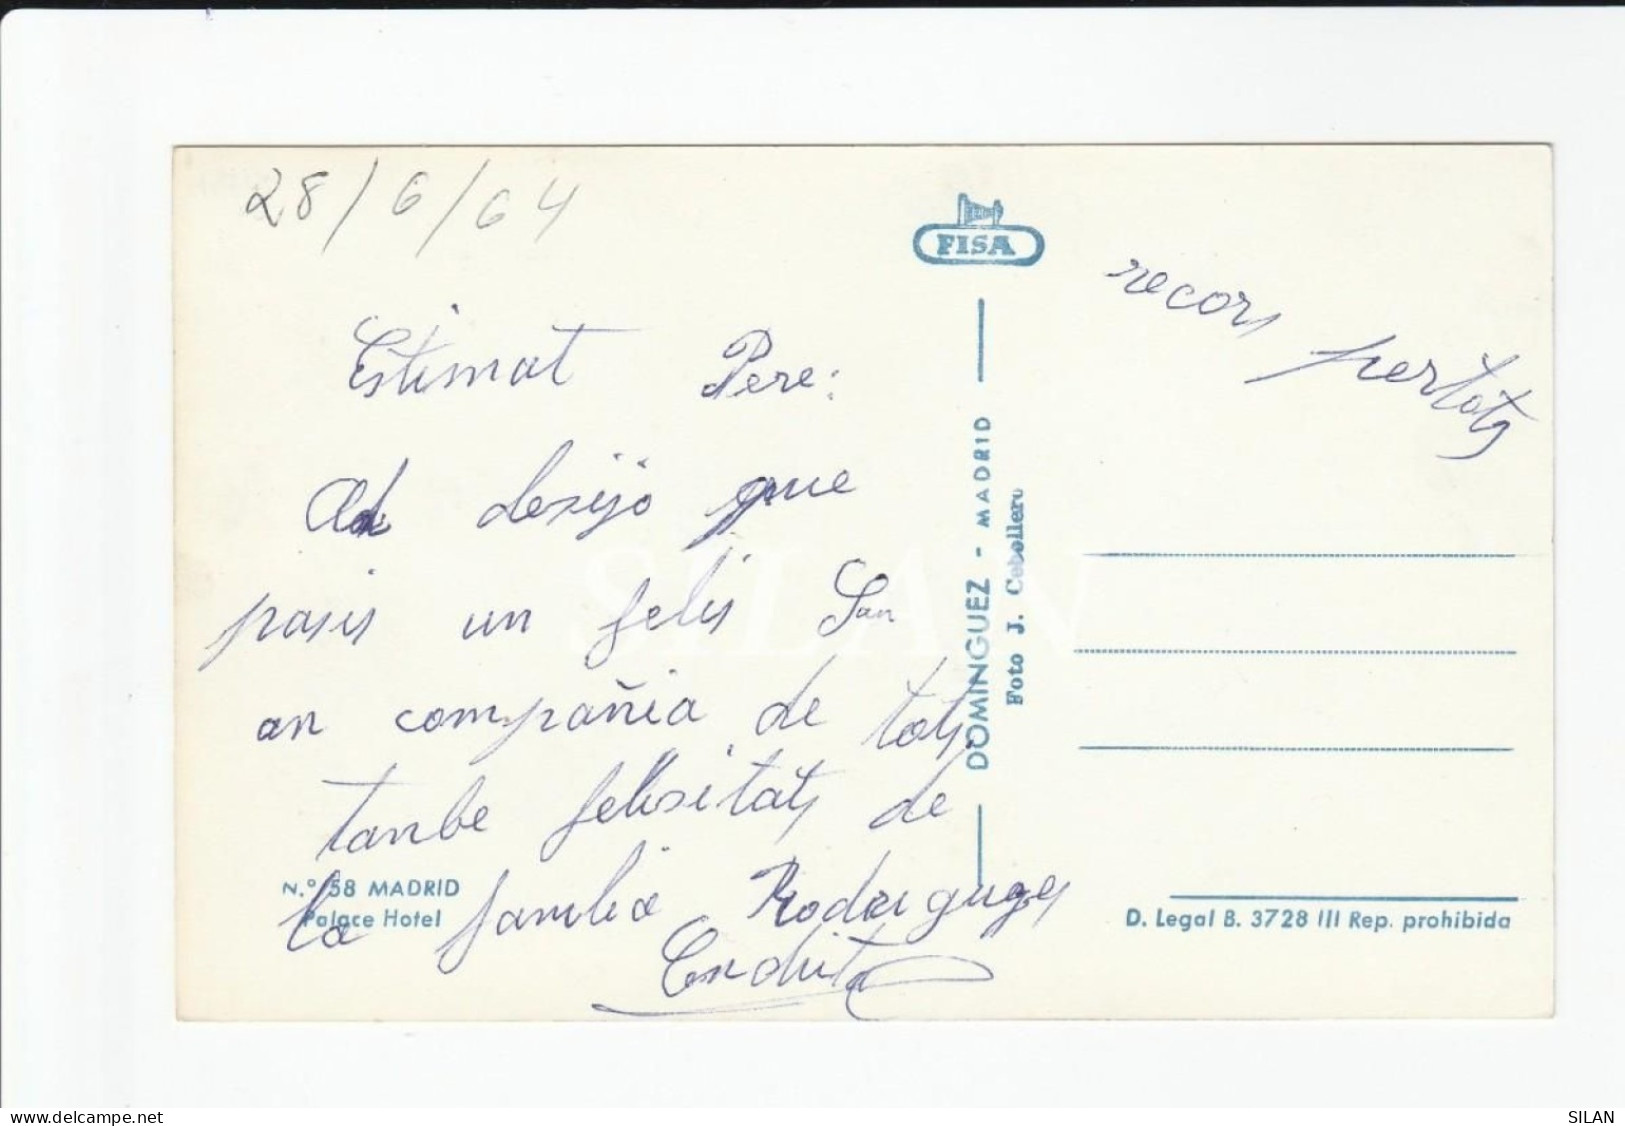 28/6/64
Estimat Pere:
Ad desijo que
pasis un felis San
an compañia de tots
tambe felisitats de
la familia
recors per tots
FISA
DOMINGUEZ - MADRID
Foto J. Cebollero
N.º 58 MADRID
Palace Hotel
D. Legal B. 3728 III Rep. prohibida
SILAN
www.delcampe.net
SILAN